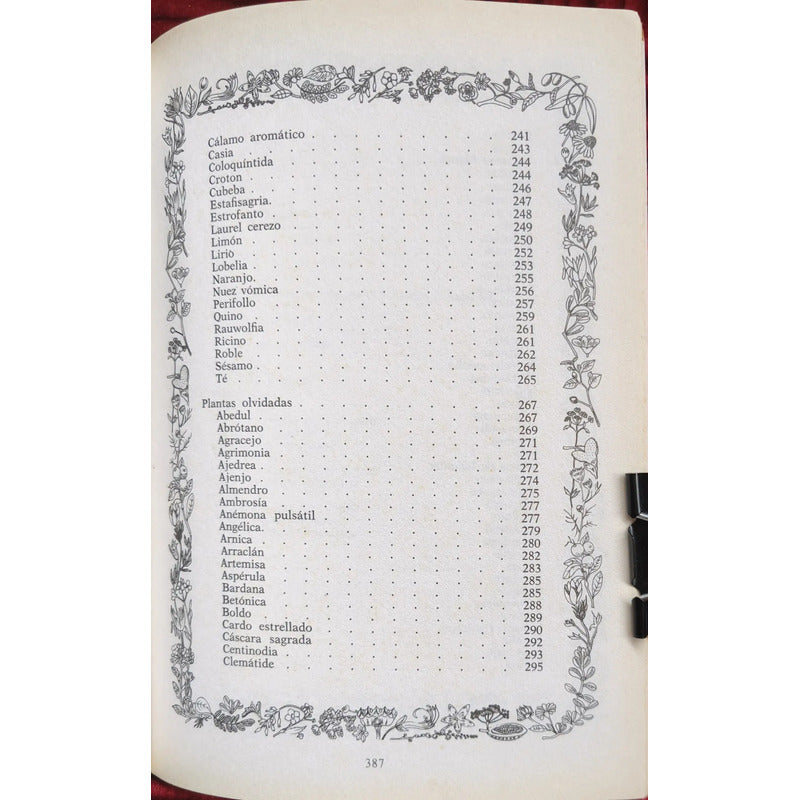 Cálamo aromático . . . . . . . . . . 241
Casia . . . . . . . . . . 243
Coloquíntida . . . . . . . . . . 244
Croton . . . . . . . . . . 244
Cubeba . . . . . . . . . . 246
Estafisagria. . . . . . . . . . 247
Estrofanto . . . . . . . . . . 248
Laurel cerezo . . . . . . . . . . 249
Limón . . . . . . . . . . 250
Lirio . . . . . . . . . . 252
Lobelia . . . . . . . . . . 253
Naranjo. . . . . . . . . . 255
Nuez vómica . . . . . . . . . . 256
Perifollo . . . . . . . . . . 257
Quino . . . . . . . . . . 259
Rauwolfia . . . . . . . . . . 261
Ricino . . . . . . . . . . 261
Roble . . . . . . . . . . 262
Sésamo . . . . . . . . . . 264
Té . . . . . . . . . . 265
Plantas olvidadas . . . . . . . . . . 267
Abedul . . . . . . . . . . 267
Abrótano . . . . . . . . . . 269
Agracejo . . . . . . . . . . 271
Agrimonia . . . . . . . . . . 271
Ajedrea . . . . . . . . . . 272
Ajenjo . . . . . . . . . . 274
Almendro . . . . . . . . . . 275
Ambrosía . . . . . . . . . . 277
Anémona pulsátil . . . . . . . . . . 277
Angélica. . . . . . . . . . 279
Arnica . . . . . . . . . . 280
Arraclán . . . . . . . . . . 282
Artemisa . . . . . . . . . . 283
Aspérula . . . . . . . . . . 285
Bardana . . . . . . . . . . 285
Betónica . . . . . . . . . . 288
Boldo . . . . . . . . . . 289
Cardo estrellado . . . . . . . . . . 290
Cáscara sagrada . . . . . . . . . . 292
Centinodia . . . . . . . . . . 293
Clemátide . . . . . . . . . . 295
387